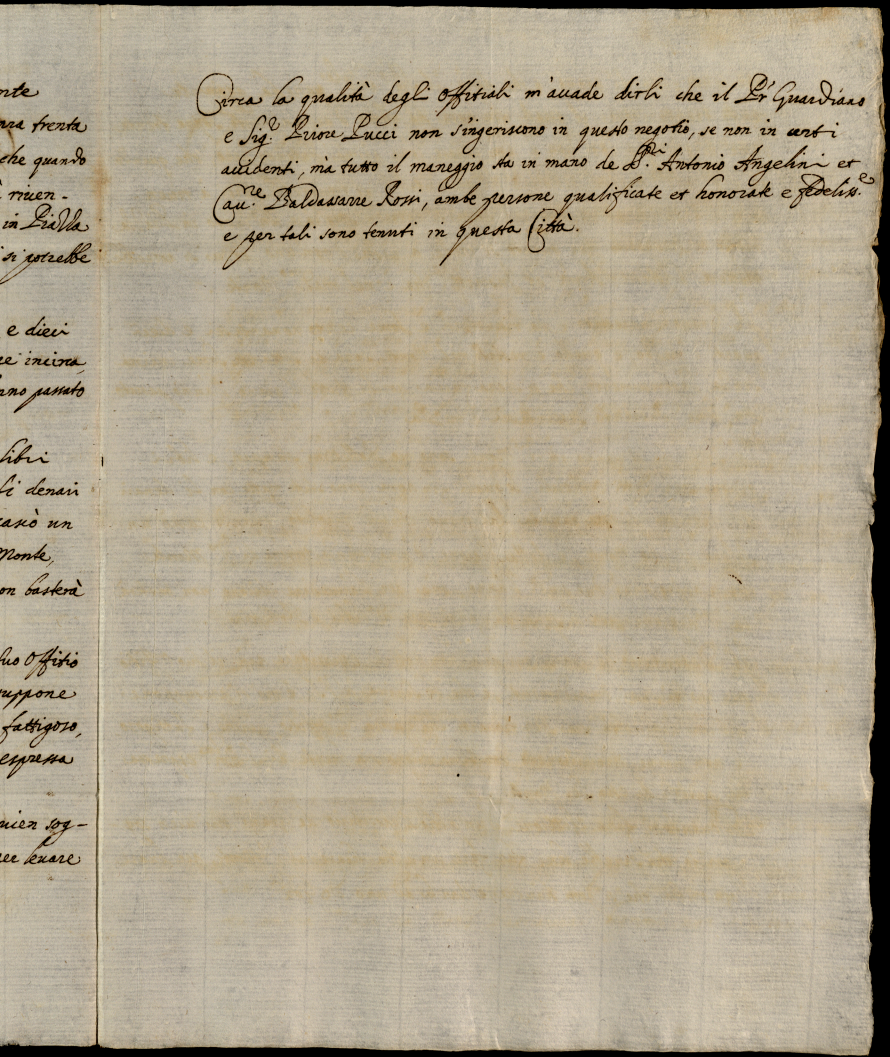 nte
nza trenta
che quando
riuen-
in Piazza
si potrebbe
e dieci
ze incirca,
nno passato
libri
li denari
lasciò un
Monte,
on basterà
suo Offitio
suppone
fattigoso,
espressa
uien sog-
per leuare
Circa la qualità degli Offitiali m'accade dirli che il Pr Guardiano
e Sigr. Priore Pucci non s'ingeriscono in questo negotio, se non in certi
accidenti, mà tutto il maneggio sta in mano de SSri. Antonio Angelini et
Caure. Baldassarre Rossi, ambe persone qualificate et honorate e fedeliss.e
e per tali sono tenuti in questa Città.